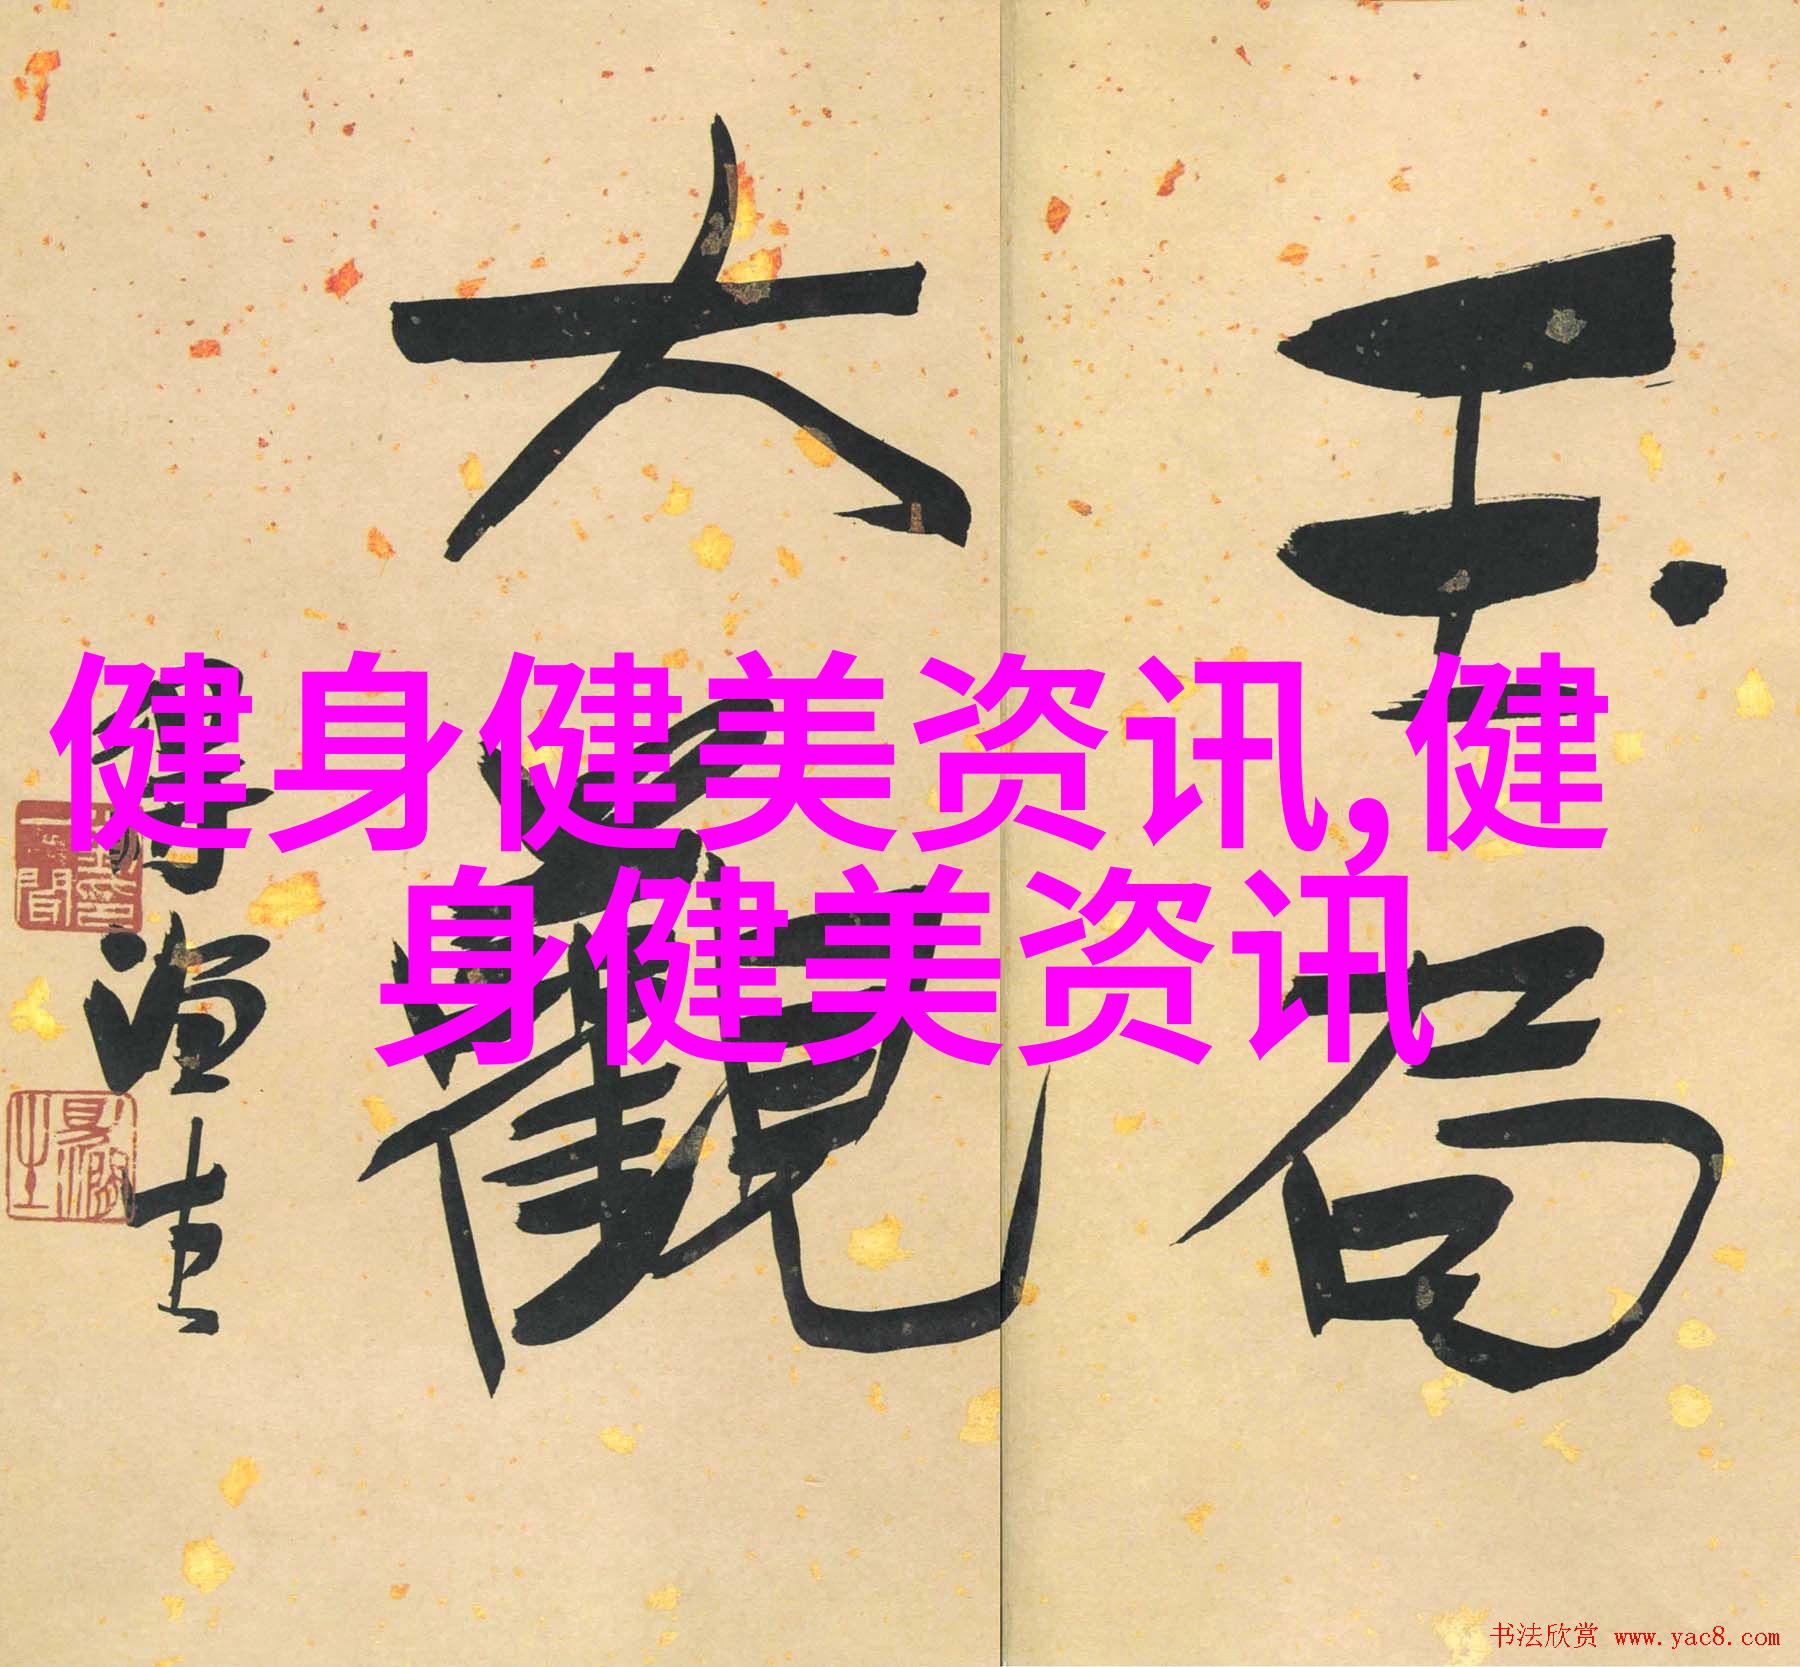 健身健美资讯,健
身健美资讯
玉局
大觀
书法欣赏 www.yac8.com